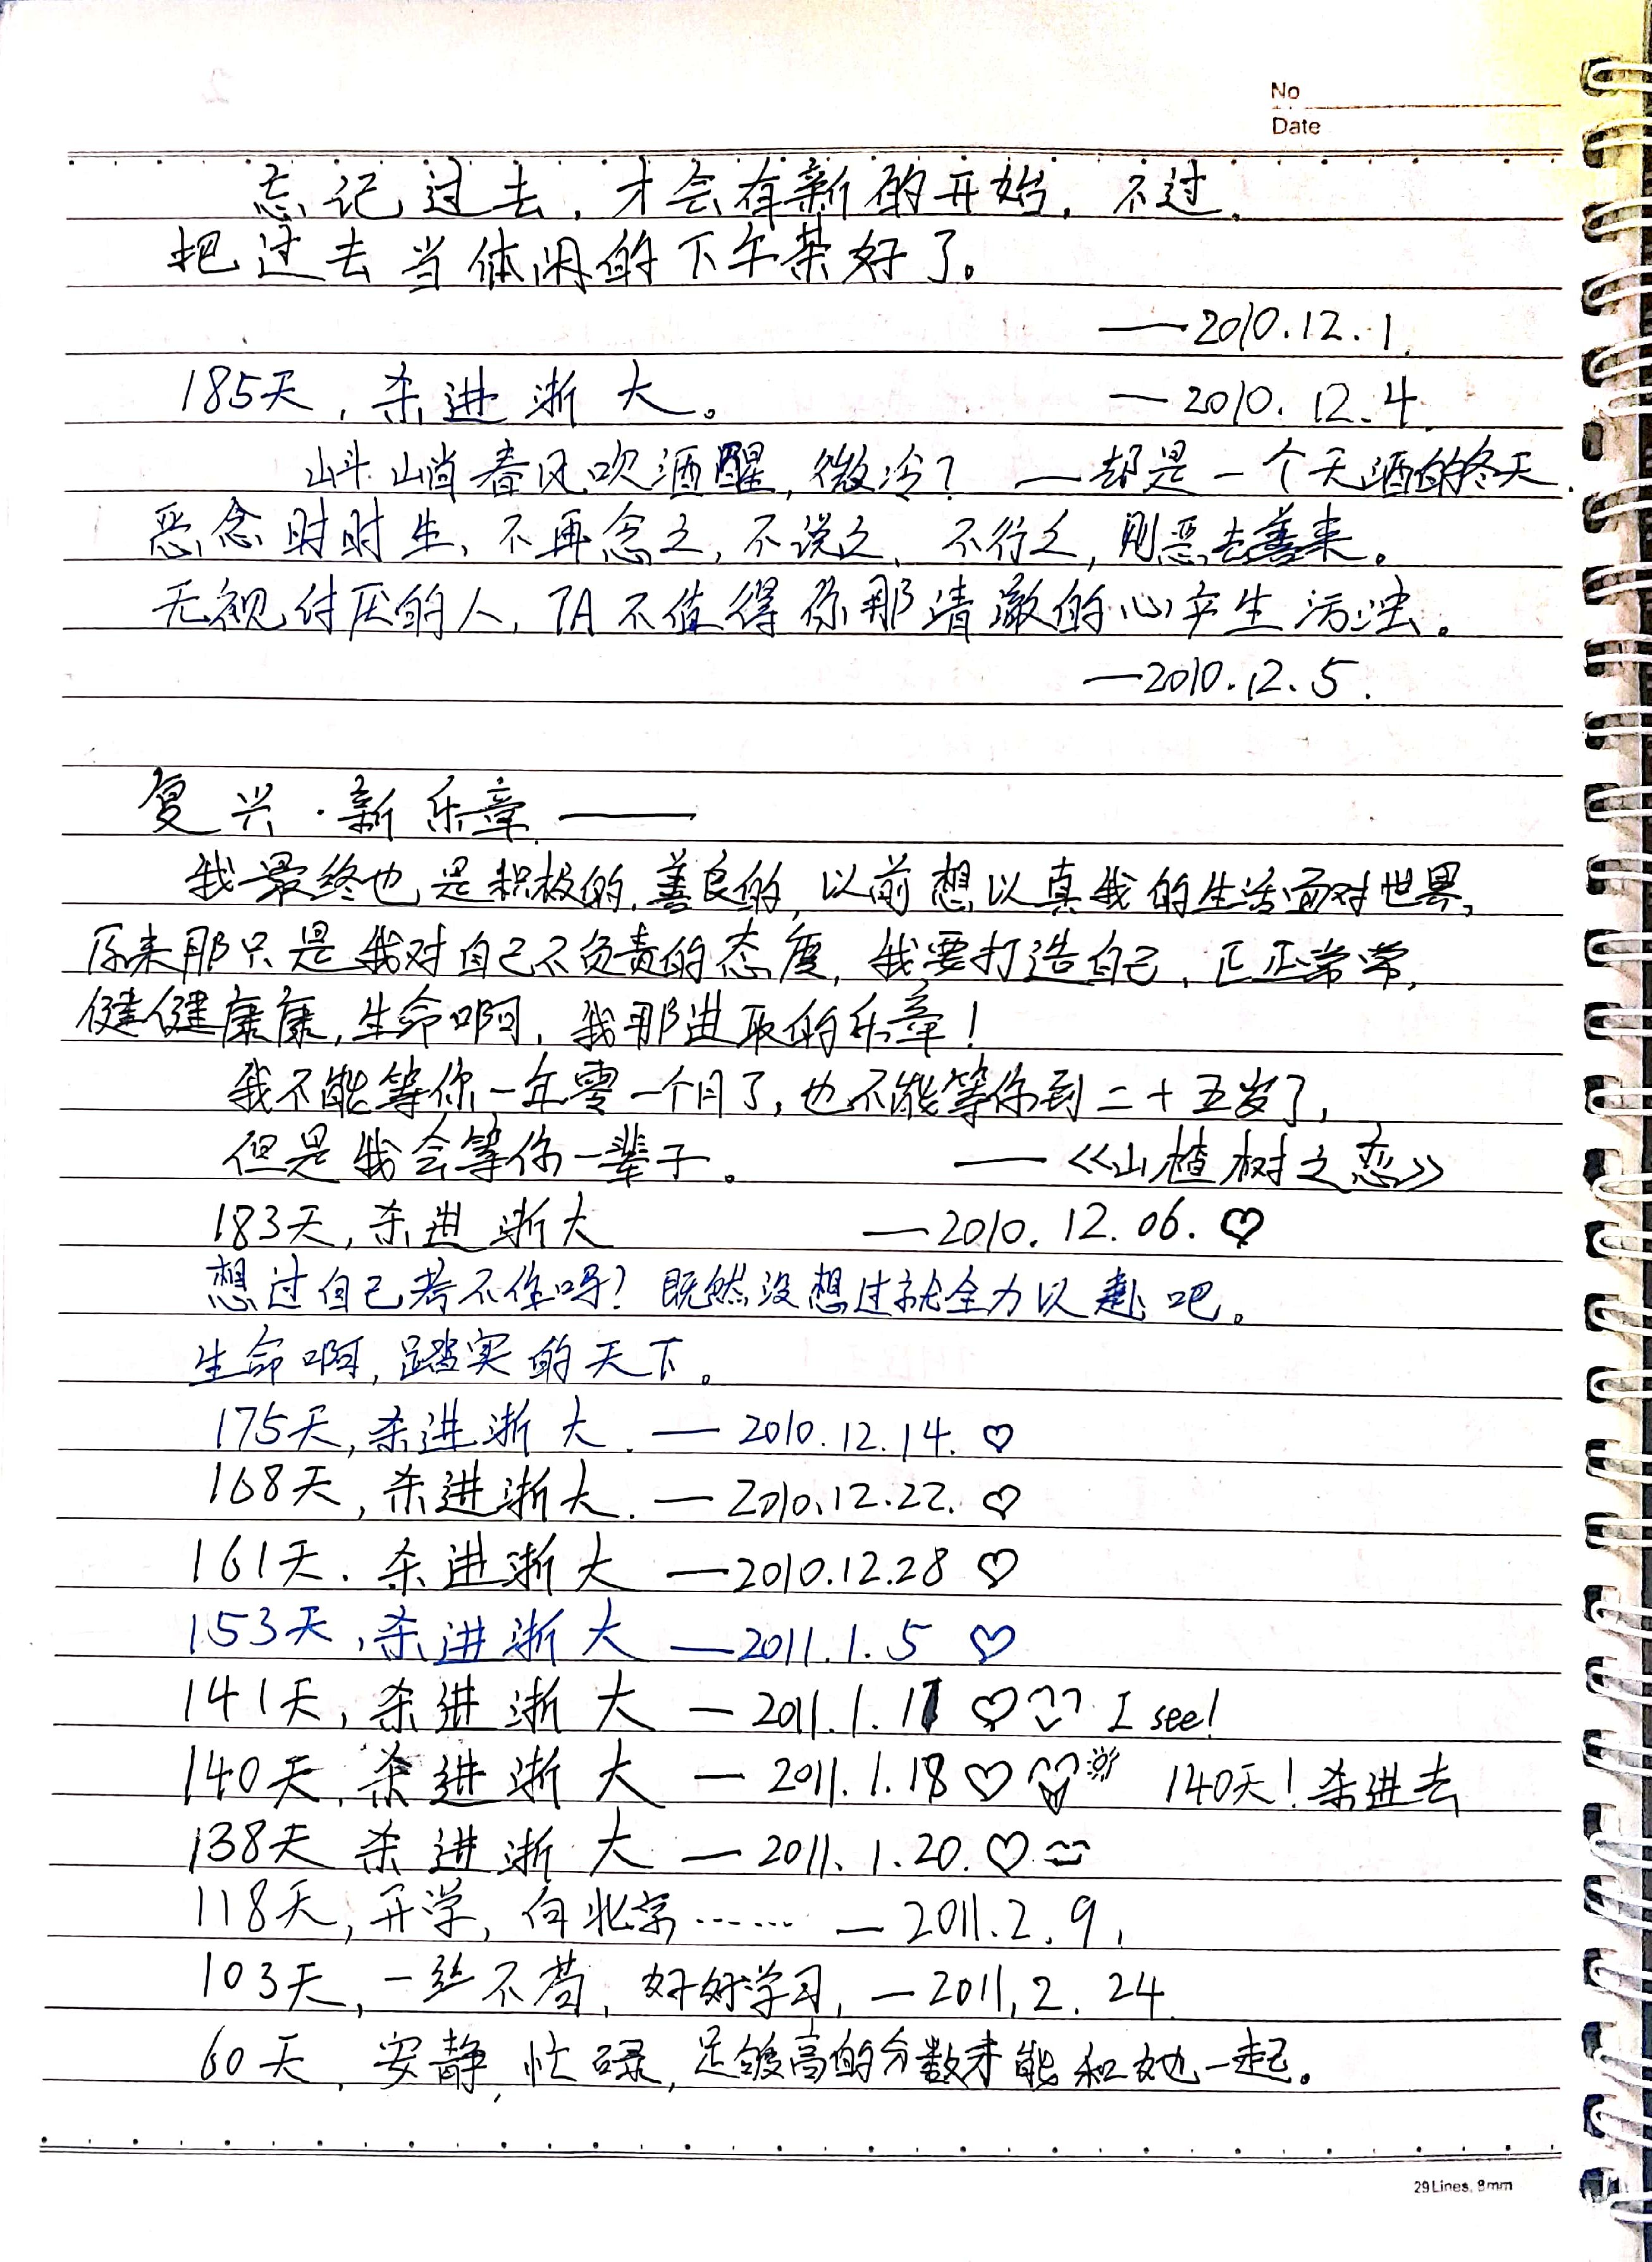 No
Date
忘记过去,才会有新的开始,不过,
把过去当休闲的下午茶好了。
——2010.12.1.
185天,杀进浙大。 —2010.12.4.
斗峭春风吹酒醒,微冷? —却是一个无酒的冬天.
恶念时时生,不再念之,不说之、不行之,则恶去善来。
无视讨厌的人,TA不值得你那清澈的心产生污浊。
—2010.12.5.
复兴·新乐章——
我最终也是积极的,善良的,以前想以真我的生活面对世界,
原来那只是我对自己不负责的态度,我要打造自己,正正常常,
健健康康,生命啊,我那进取的乐章!
我不能等你一年零一个月了,也不能等你到二十五岁了,
但是我会等你一辈子。 ——《山楂树之恋》
183天,杀进浙大 —2010.12.06.♡
想过自己考不住吗?既然没想过就全力以赴吧。
生命啊,踏实的天下。
175天,杀进浙大.—2010.12.14.♡
168天,杀进浙大.—2010.12.22.♡
161天.杀进浙大—2010.12.28♡
153天,杀进浙大—2011.1.5♡
141天,杀进浙大—2011.1.17♡ I see!
140天,杀进浙大—2011.1.18♡ 140天!杀进去
138天 杀进浙大—2011.1.20.♡
118天,开学,向北京……—2011.2.9.
103天,一丝不苟,好好学习,—2011.2.24.
60天,安静,忙碌,足够高的分数才能和她一起。
29Lines, 8mm